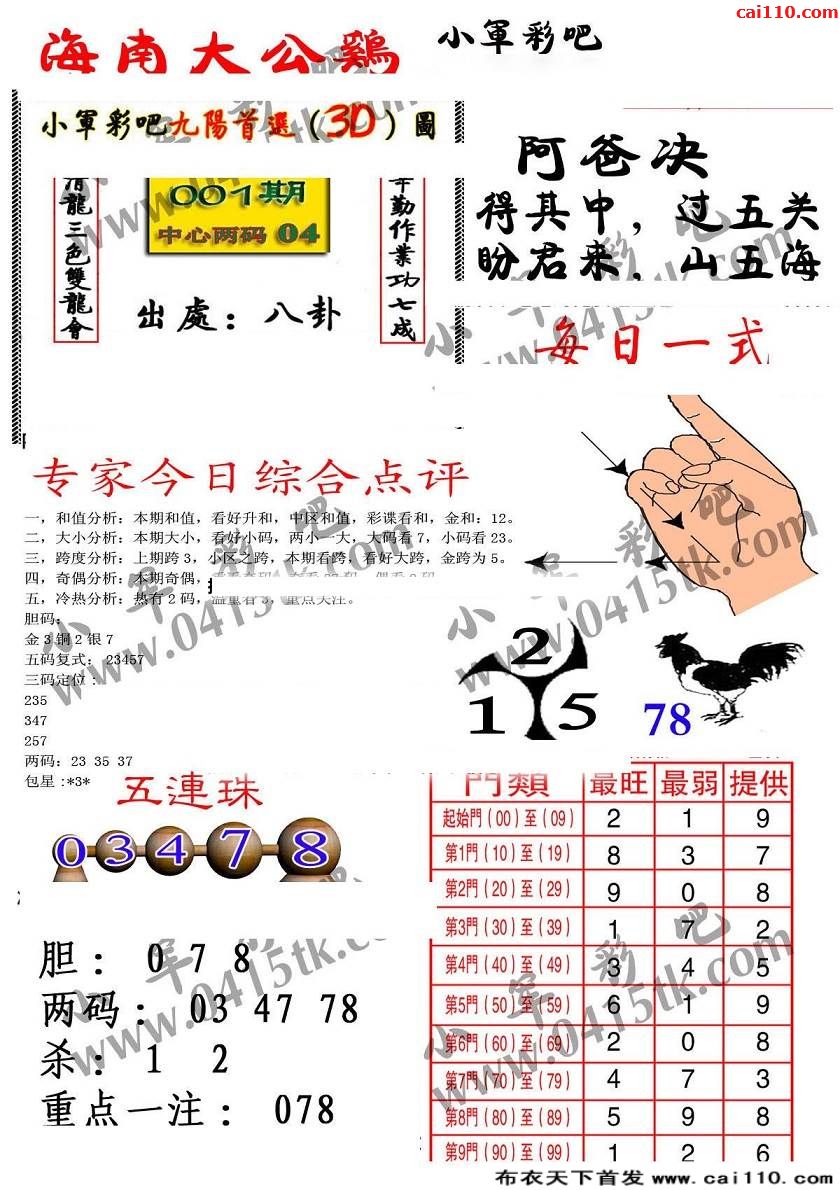 cai110.com
海南大公鷄
小軍彩吧
小軍彩吧九陽首選(3D)圖
清龍三色雙龍會
001期
中心两码 04
辛勤作業功七成
出處：八卦
阿爸决
得其中，过五关
盼君来，山五海
每日一式
专家今日综合点评
一，和值分析：本期和值，看好升和，中区和值，彩谍看和，金和：12。
二，大小分析：本期大小，看好小码，两小一大，大码看7，小码看23。
三，跨度分析：上期跨3，小区之跨，本期看跨，看好大跨，金跨为5。
四，奇偶分析：本期奇偶，
五，冷热分析：热有2码，温重看3，重点关注。
胆码：
金3铜2银7
五码复式：23457
三码定位：
235
347
257
两码：23 35 37
包星:*3*
2
1 5
78
五連珠
0 3 4 7 8
胆： 0 7 8
两码： 03 47 78
杀： 1 2
重点一注： 078
門類 最旺 最弱 提供
起始門(00)至(09) 2 1 9
第1門(10)至(19) 8 3 7
第2門(20)至(29) 9 0 8
第3門(30)至(39) 1 7 2
第4門(40)至(49) 3 4 5
第5門(50)至(59) 6 1 9
第6門(60)至(69) 2 0 8
第7門(70)至(79) 4 7 3
第8門(80)至(89) 5 9 8
第9門(90)至(99) 1 2 6
小军彩吧
www.0415tk.com
布衣天下首发 www.cai110.com